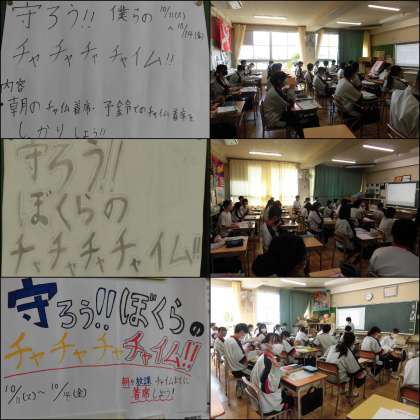 守ろう!! 僕らの 10/11(火)
~10/14(金)
チャチャチャチャイム!!
内容
朝のチャイム着席・予鈴でのチャイム着席を
しっかりしよう!!
守ろう!!
ぼくらの
チャチャチャチャイム!!
守ろう!!ぼくらの
チャチャチャチャイム!!
10/11(火)~10/14(金)
朝や放課
着席しよう!